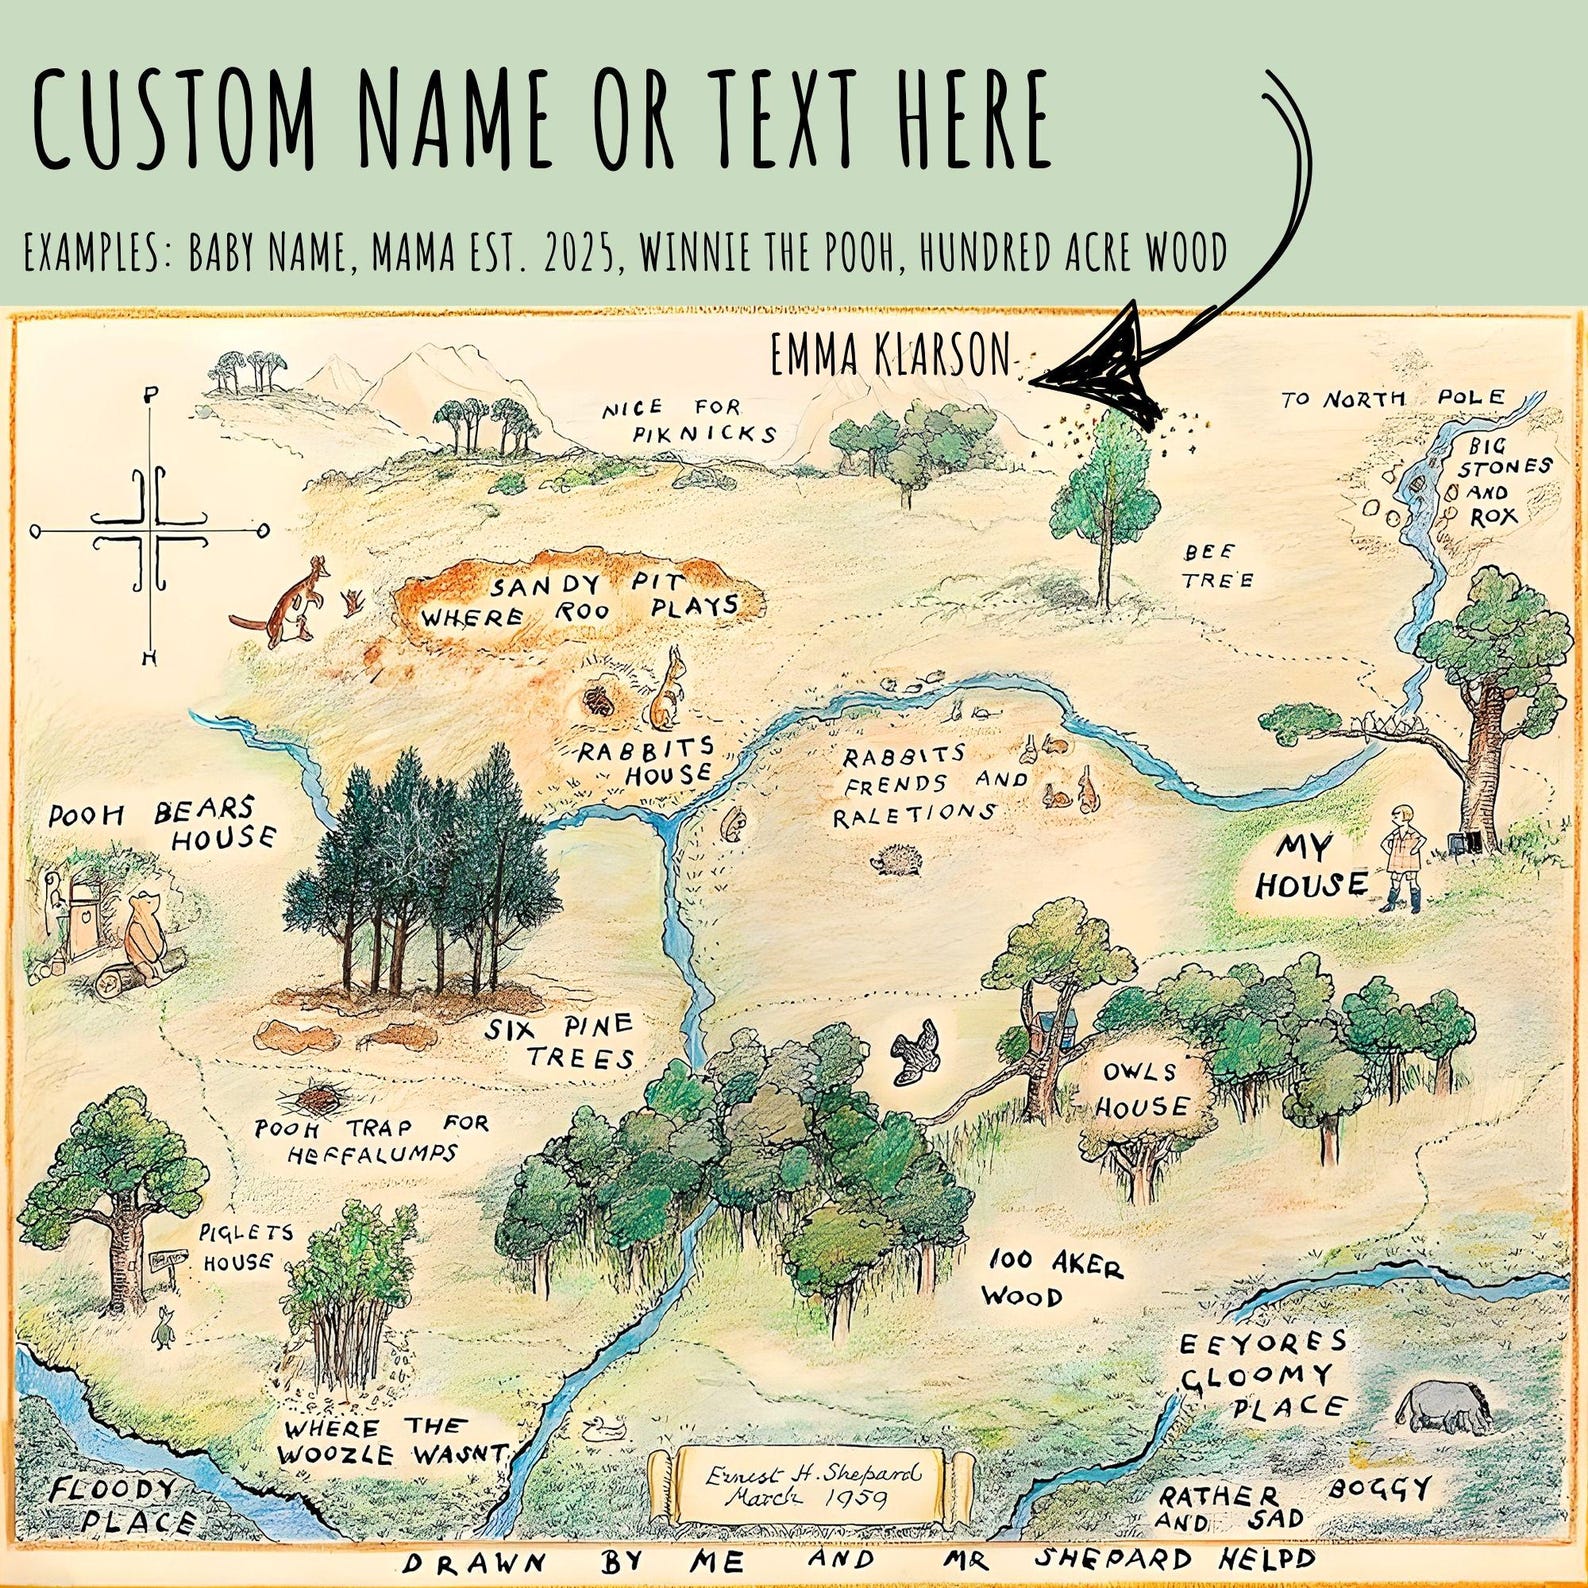 CUSTOM NAME OR TEXT HERE
EXAMPLES: BABY NAME, MAMA EST. 2025, WINNIE THE POOH, HUNDRED ACRE WOOD
EMMA KLARSON
P
O O
H
NICE FOR
PIKNICKS
TO NORTH POLE
BIG
STONES
AND
ROX
BEE
TREE
SANDY PIT
WHERE ROO PLAYS
RABBITS
HOUSE
RABBITS
FRENDS AND
RALETIONS
POOH BEARS
HOUSE
MY
HOUSE
SIX PINE
TREES
OWLS
HOUSE
POOH TRAP FOR
HEFFALUMPS
PIGLETS
HOUSE
100 AKER
WOOD
EEYORES
GLOOMY
PLACE
WHERE THE
WOOZLE WASNT
FLOODY
PLACE
Ernest H. Shepard
March 1959
RATHER BOGGY
AND SAD
DRAWN BY ME AND MR SHEPARD HELPD